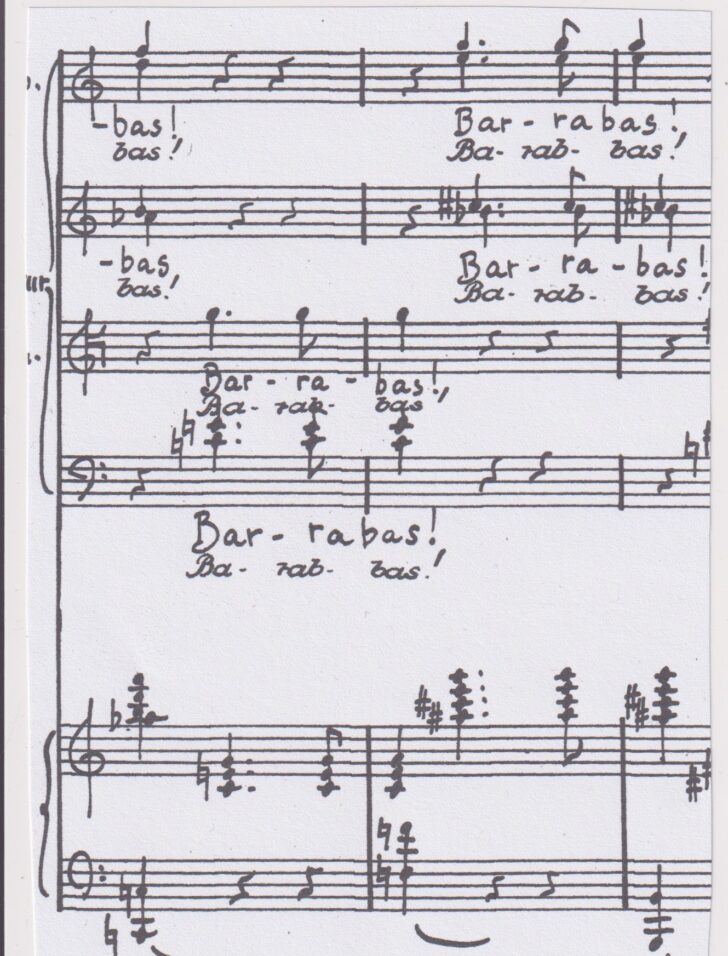 -bas! Bar-rabas!,
bas! Ba-rab-bas!
-bas Bar-ra-bas!
bas! Ba-rab-bas!
Bar-ra-bas!,
Ba-rab-bas
Bar-rabas!
Ba-rab-bas!